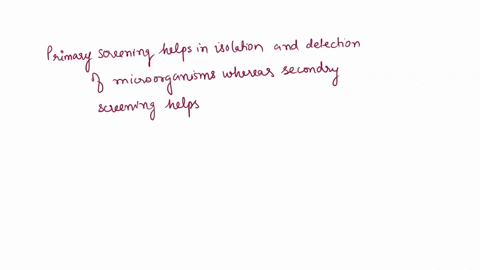 Primary screening helps in isolation and detection
of microorganisms whereas secondry
screening helps